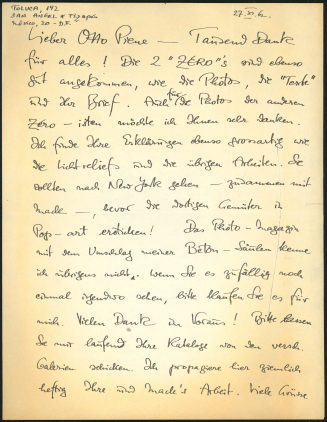 TOLUCA, 192
SAN ANGEL
MEXICO, 20 - D.F.
Lieber Otto Piene — Tausend Dank
für alles! Die 2 "ZERO"s sind ebenso
gut angekommen, wie die Photos, die "Texte"
und Ihr Brief. Auch für die Photos der anderen
Zero-isten möchte ich Ihnen sehr danken.
Ich finde Ihre Erklärungen ebenso grossartig wie
die Lichtreliefs und die übrigen Arbeiten. Sie
sollten nach New York gehen — zusammen mit
Mack —, bevor die dortigen Gemüter in
Pop-art ersticken! Das Photo-Magazin
mit dem Umschlag meiner Beton-Säulen kenne
ich übrigens nicht. Wenn Sie es zufällig noch
einmal irgendwo sehen, bitte kaufen Sie es für
mich. Vielen Dank im Voraus! Bitte lassen
Sie mir laufend Ihre Kataloge von den versch.
Galerien schicken. Ich propagiere hier ziemlich
heftig Ihre und Mack's Arbeit. Viele Grüsse